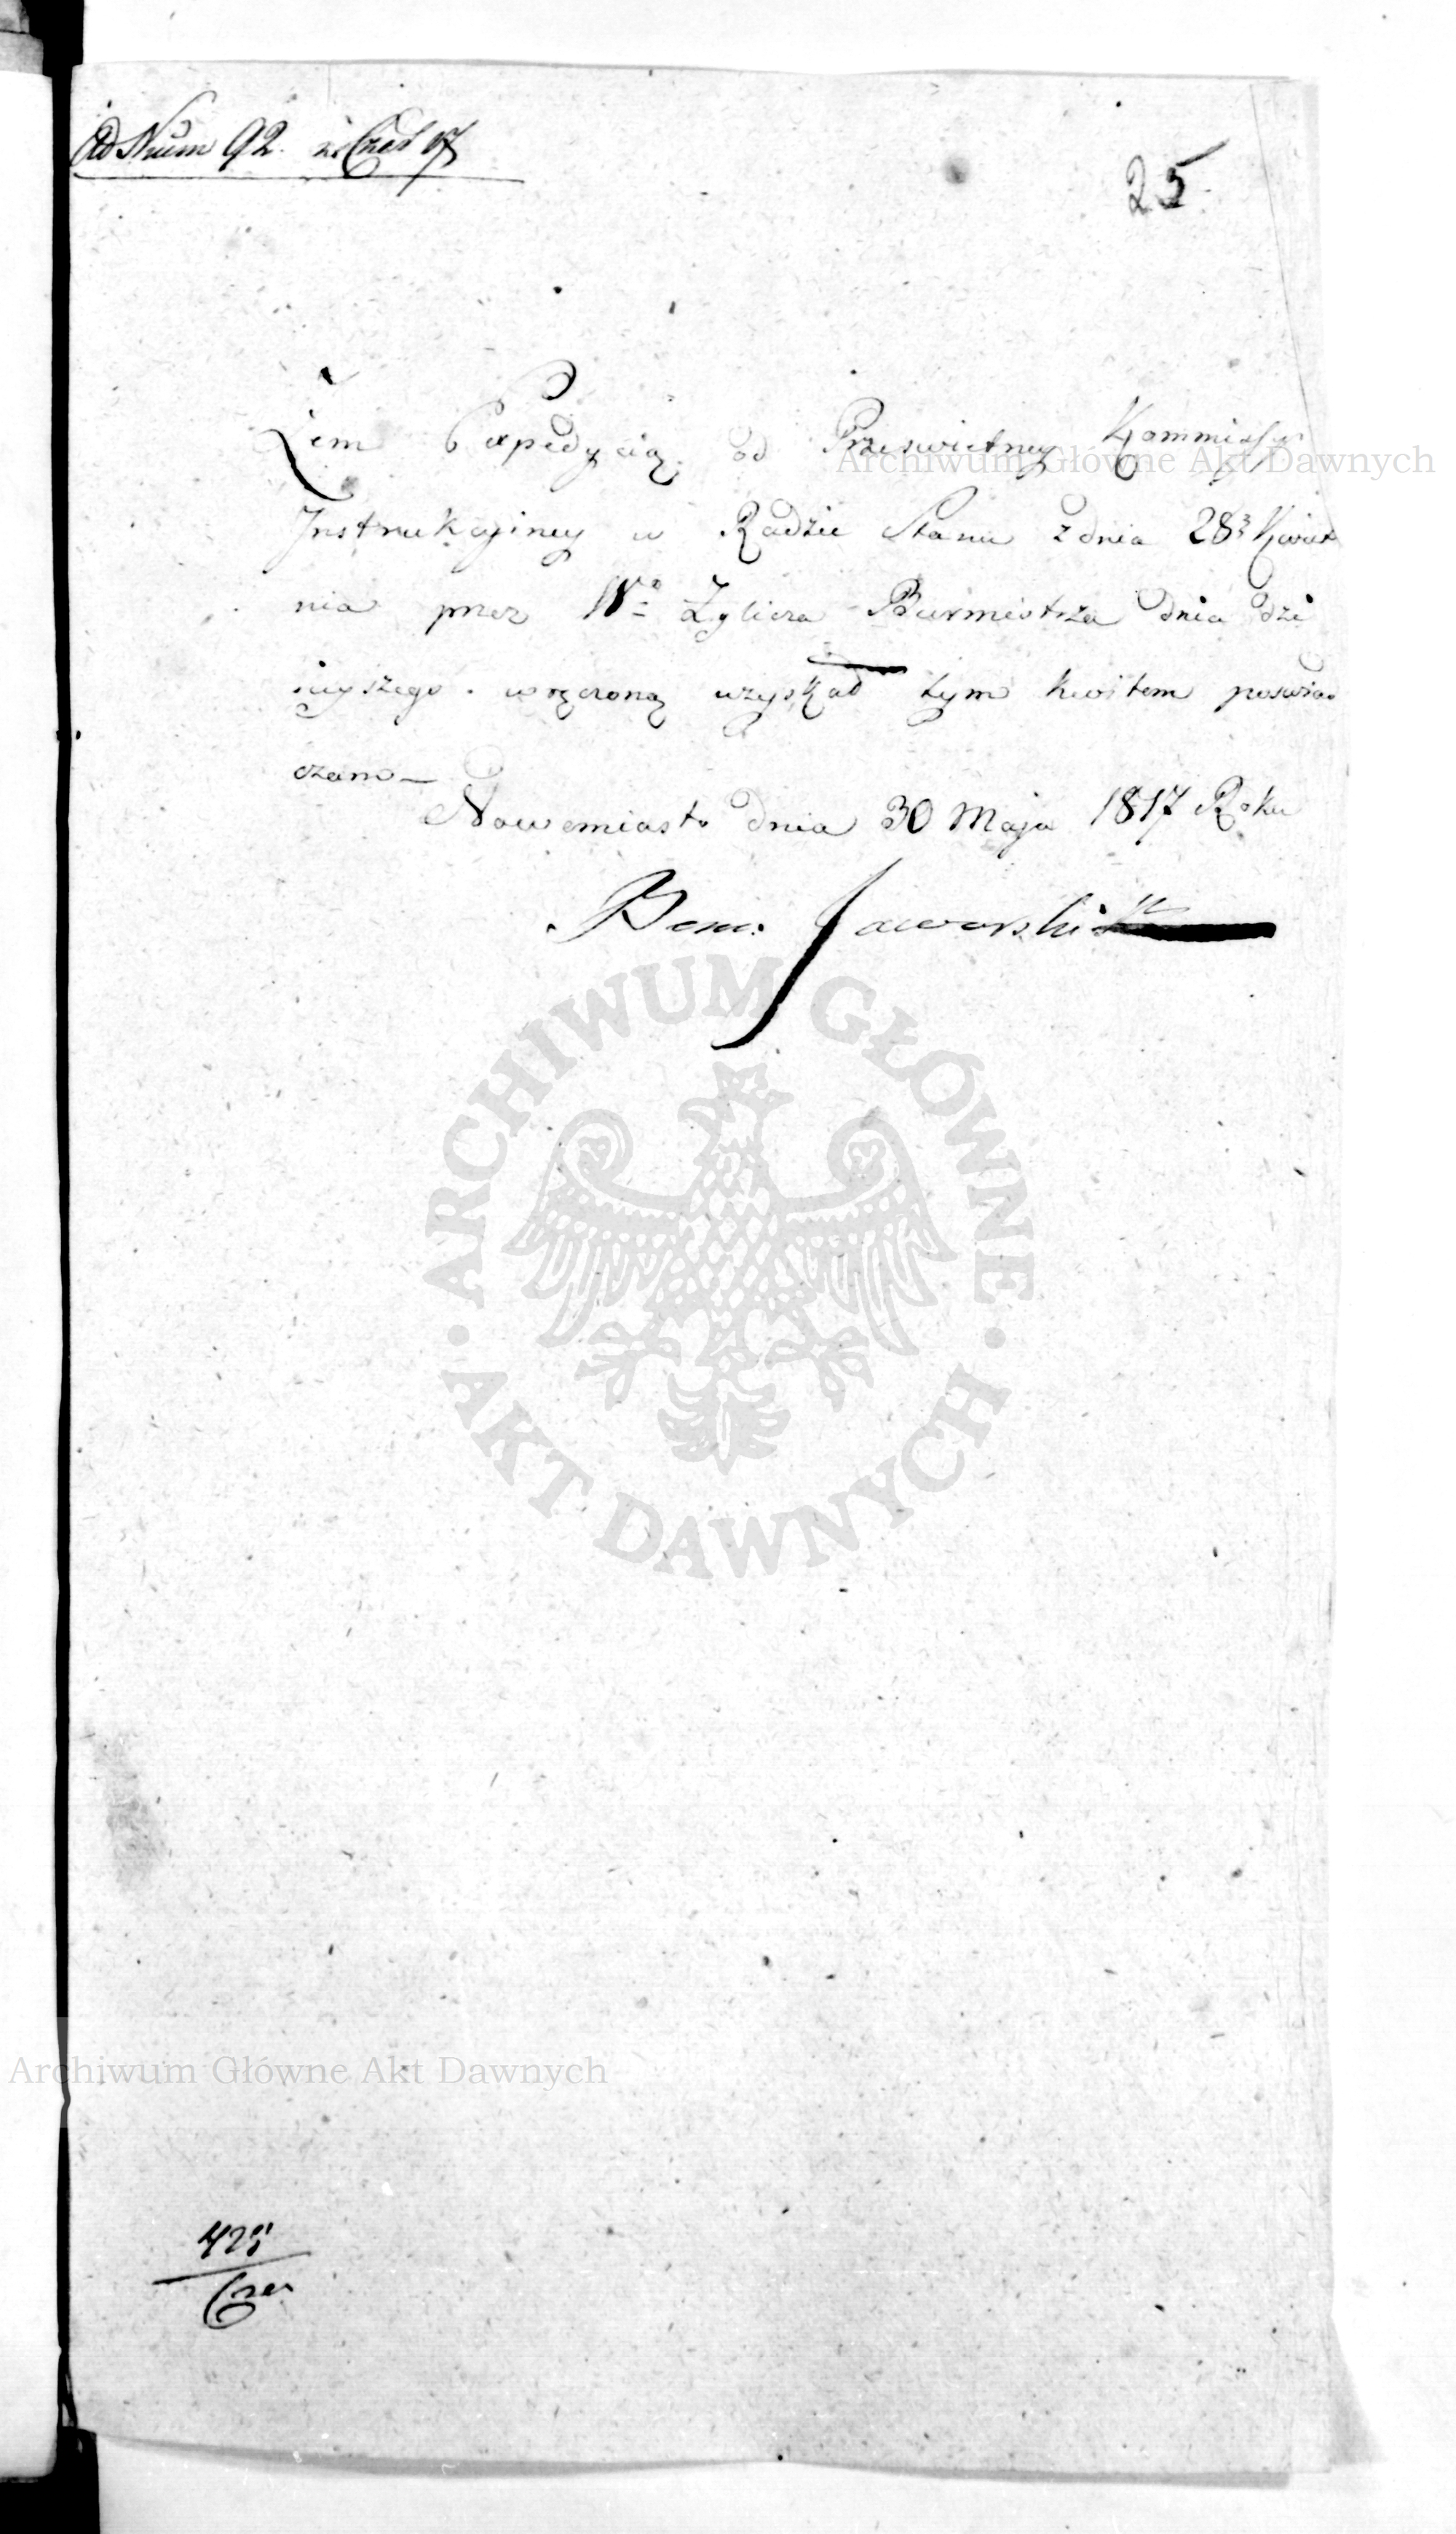 Ad Num 92.
25
Żem Expedycią od Prześwietney Kommissyi
Instrukcyiney w Radzie Stanu z dnia 28 Kwiet
nia przez Wo Zyliera Burmistrza dnia dzi
sieyszego wręczoną uzyskał tym kwitem poswiad
czam
Nowemiasto dnia 30 Maja 1817 Roku
Jaworski
Archiwum Główne Akt Dawnych
ARCHIWUM GŁÓWNE AKT DAWNYCH
Archiwum Główne Akt Dawnych
Czer